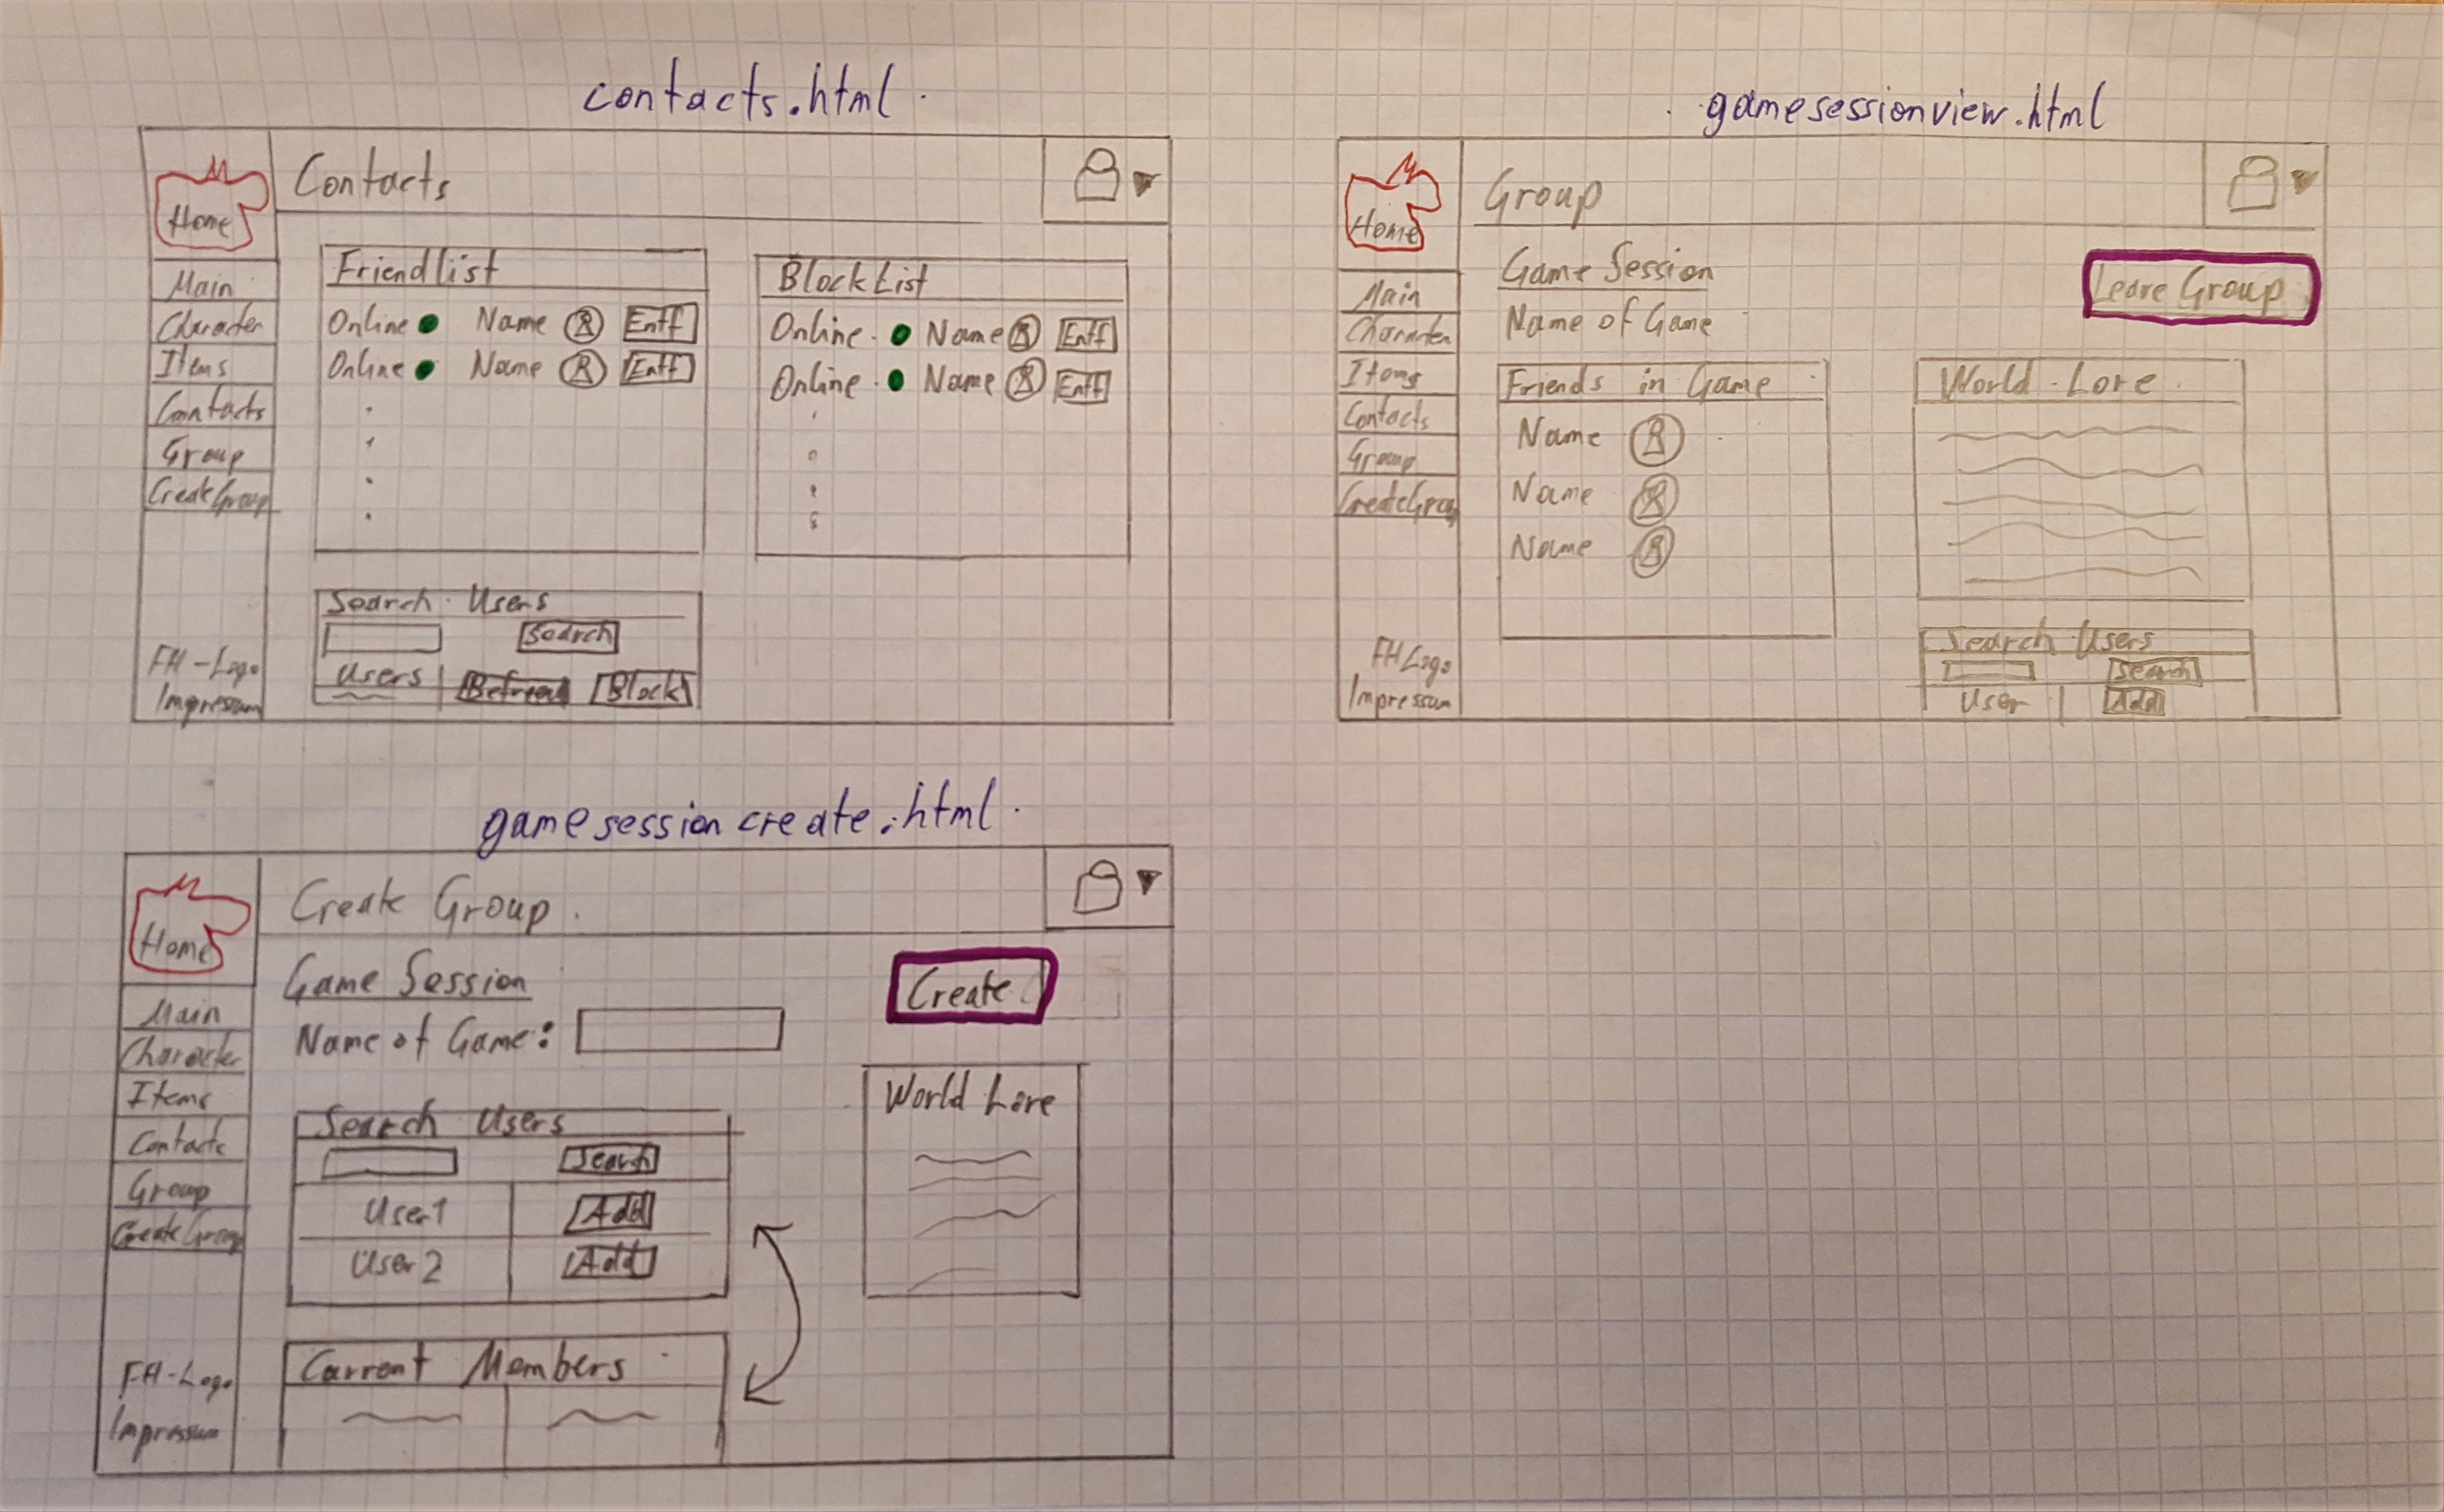 contacts.html
Home
Contacts
Main
Character
Items
Contacts
Group
CreateGroup
FH-Logo
Impressum
Friendlist
Online Name Entf
Online Name Entf
BlockList
Online Name Entf
Online Name Entf
Search Users
Search
Users Befriend Block
gamesessionview.html
Home
Group
Main
Character
Items
Contacts
Group
CreateGroup
FH Logo
Impressum
Game Session
Name of Game
Leave Group
Friends in Game
Name
Name
Name
World Lore
Search Users
Search
User Add
gamesessioncreate.html
Home
Create Group
Main
Character
Items
Contacts
Group
CreateGroup
FH-Logo
Impressum
Game Session
Name of Game:
Create
Search Users
Search
User1 Add
User2 Add
World Lore
Current Members